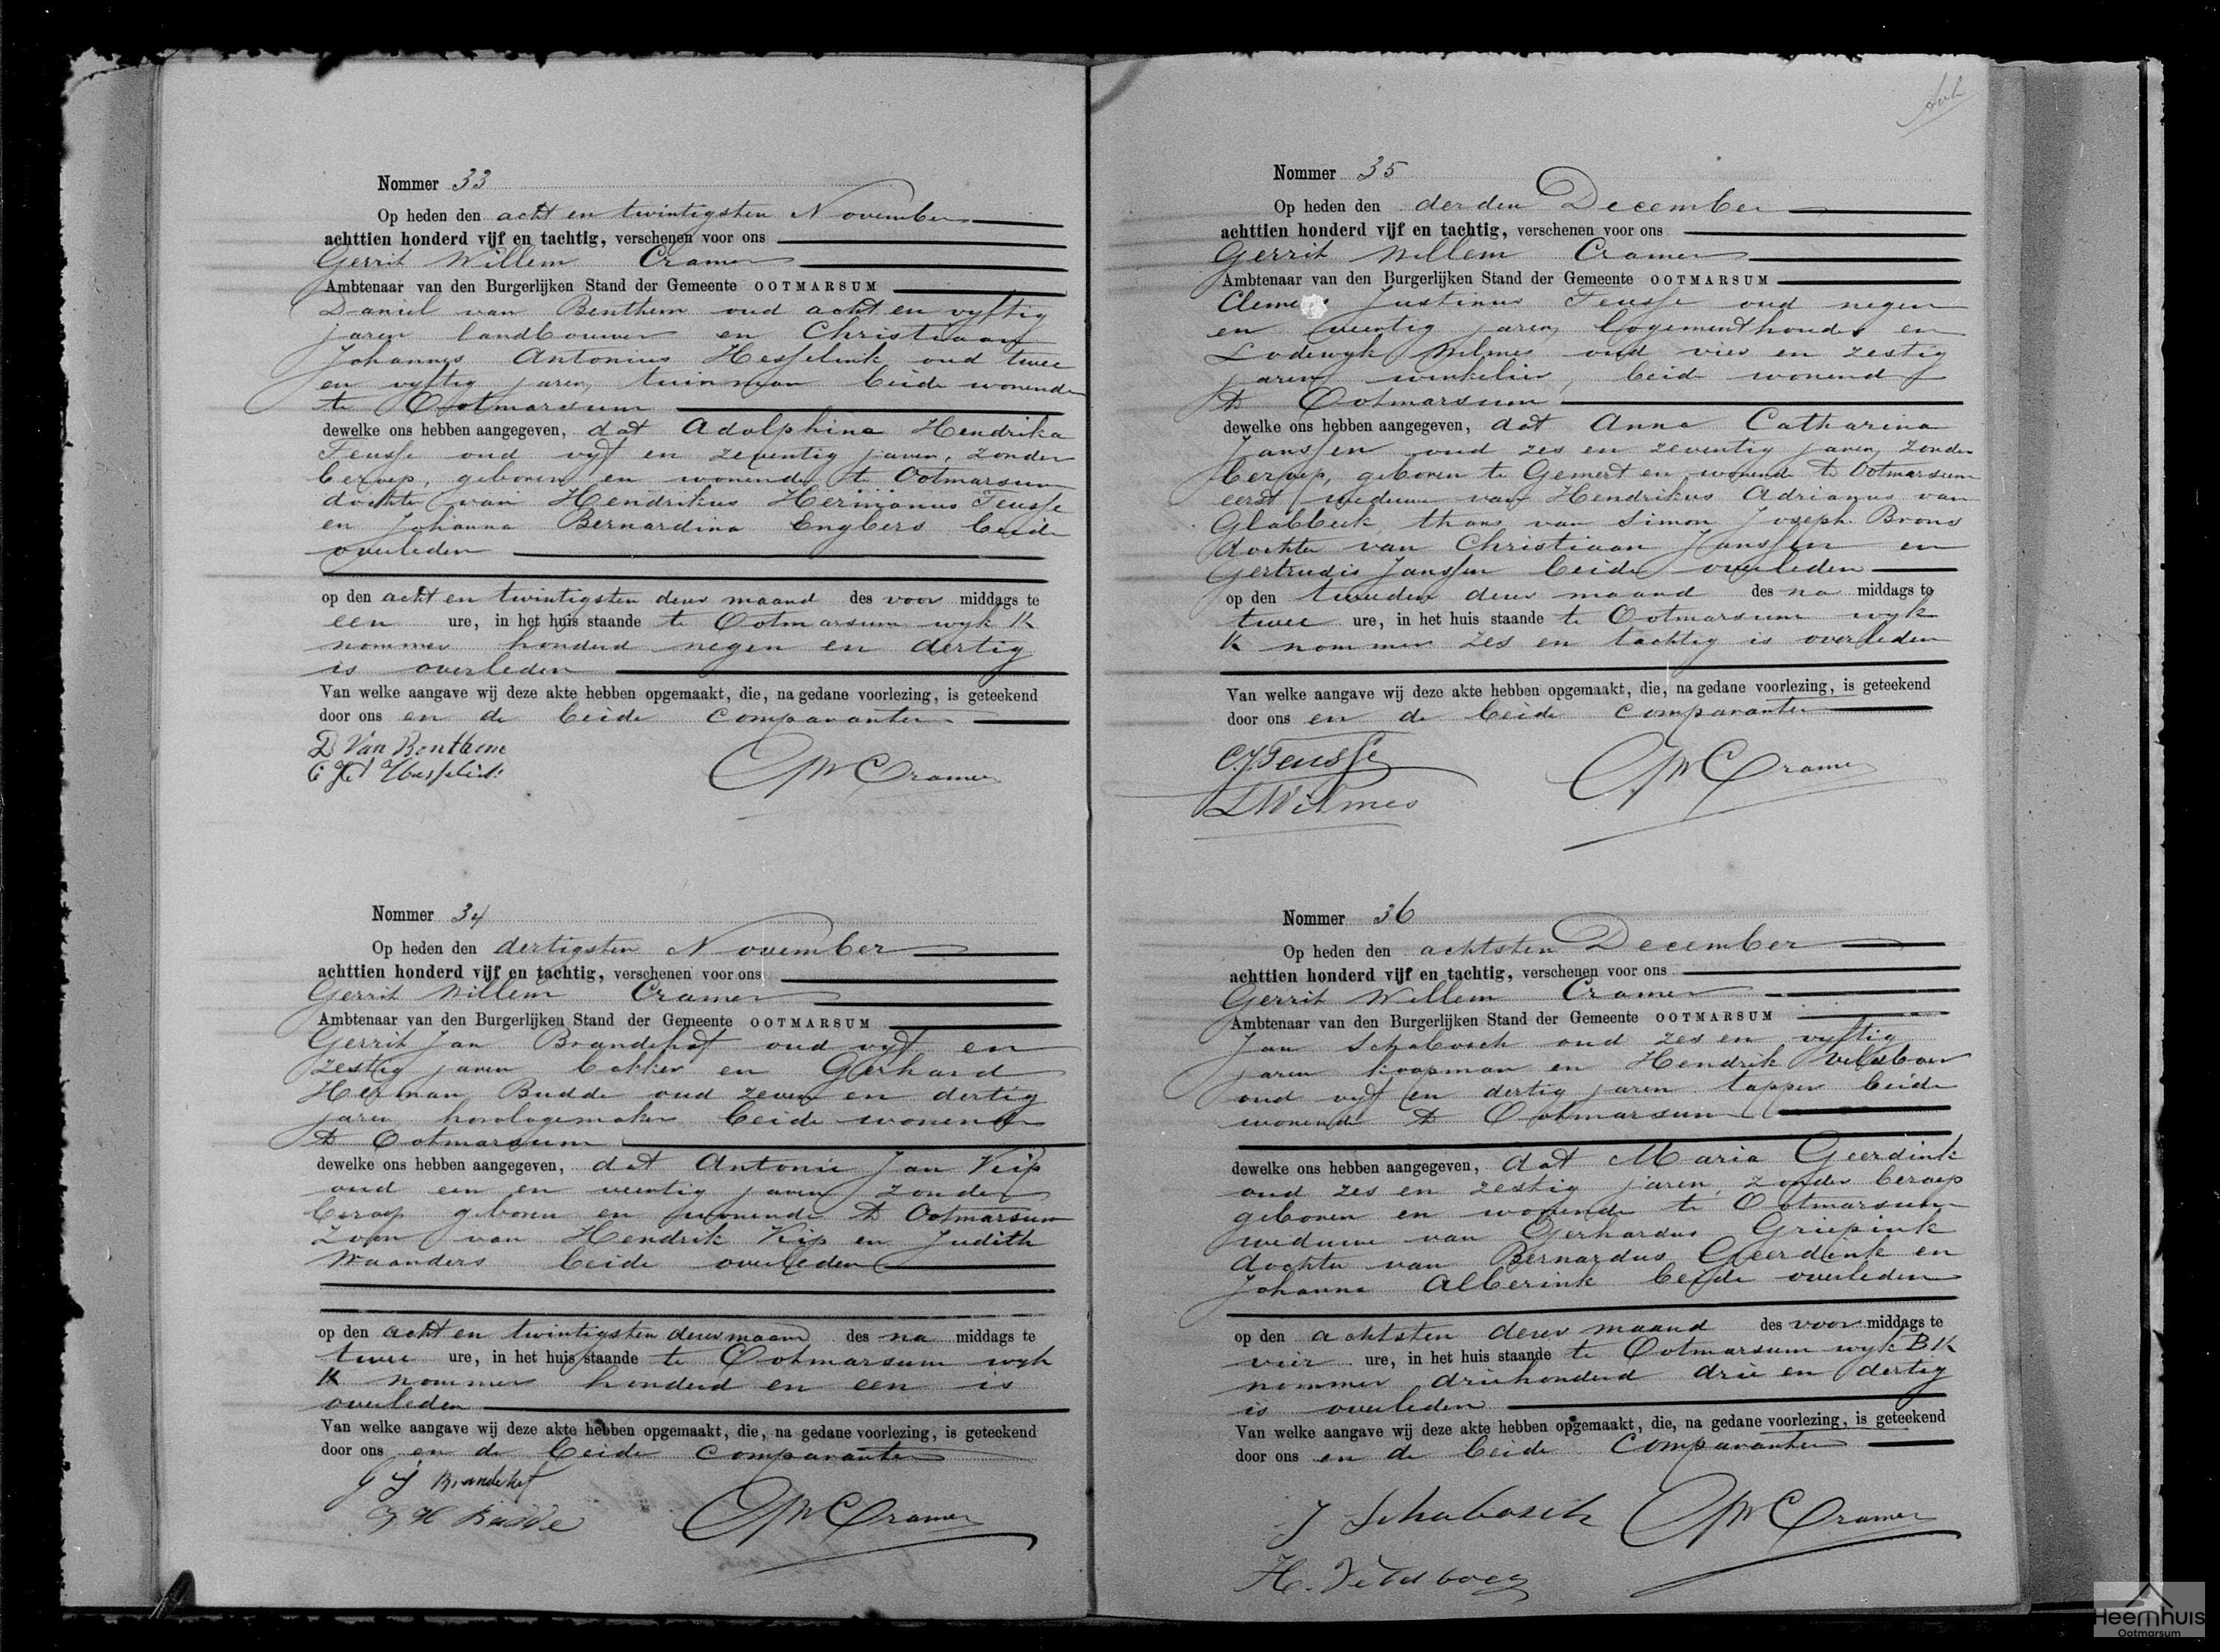 Nommer 33
Op heden den acht en twintigsten November
achttien honderd vijf en tachtig, verschenen voor ons
Gerrit Willem Cramer
Ambtenaar van den Burgerlijken Stand der Gemeente OOTMARSUM
Daniel van Benthem oud acht en vyftig
jaren landbouwer en Christiaan
Johannes Antonius Hesselink oud twee
en vyftig jaren, tuinman beide wonende
te Ootmarsum
dewelke ons hebben aangegeven, dat Adolphina Hendrika
Feusse oud vyf en zeventig jaren, zonder
beroep, geboren en wonende te Ootmarsum
dochter van Hendrikus Hermannus Feusse
en Johanna Bernardina Engbers beide
overleden
op den acht en twintigsten dezer maand des voor middags te
een ure, in het huis staande te Ootmarsum wyk K
nommer honderd negen en dertig
is overleden
Van welke aangave wij deze akte hebben opgemaakt, die, na gedane voorlezing, is geteekend
door ons en de beide comparanten
D Van Benthem
GWCramer
Nommer 34
Op heden den dertigsten November
achttien honderd vijf en tachtig, verschenen voor ons
Gerrit Willem Cramer
Ambtenaar van den Burgerlijken Stand der Gemeente OOTMARSUM
Gerrit Jan Brandehof oud vyf en
zestig jaren bakker en Gerhard
Herman Budde oud zeven en dertig
jaren horologemaker beide wonende
te Ootmarsum
dewelke ons hebben aangegeven, dat Antonie Jan Kip
oud een en veertig jaren zonder
beroep geboren en wonende te Ootmarsum
zoon van Hendrik Kip en Judith
Waanders beide overleden
op den acht en twintigsten dezer maand des na middags te
twee ure, in het huis staande te Ootmarsum wyk
K nommer honderd en een is
overleden
Van welke aangave wij deze akte hebben opgemaakt, die, na gedane voorlezing, is geteekend
door ons en de beide comparanten
G J Brandehof
G H Budde
GWCramer
Nommer 35
Op heden den derden December
achttien honderd vijf en tachtig, verschenen voor ons
Gerrit Willem Cramer
Ambtenaar van den Burgerlijken Stand der Gemeente OOTMARSUM
Justinus Feusse oud negen
en veertig jaren, logementhouder en
Lodewyk Wilmes oud vier en zestig
jaren winkelier, beide wonend
te Ootmarsum
dewelke ons hebben aangegeven, dat Anna Catharina
Janssen oud zes en zeventig jaren, zonder
beroep, geboren te Gemert en wonend te Ootmarsum
eerst weduwe van Hendrikus Adrianus van
Glabbeek thans van Simon Joseph Brons
dochter van Christiaan Janssen en
Gertrudis Janssen beide overleden
op den tweeden dezer maand des na middags te
twee ure, in het huis staande te Ootmarsum wyk
K nommer zes en tachtig is overleden
Van welke aangave wij deze akte hebben opgemaakt, die, na gedane voorlezing, is geteekend
door ons en de beide comparanten
C.J.Feusse
LWilmes
GWCramer
Nommer 36
Op heden den achtsten December
achttien honderd vijf en tachtig, verschenen voor ons
Gerrit Willem Cramer
Ambtenaar van den Burgerlijken Stand der Gemeente OOTMARSUM
Jan Schabosch oud zes en vyftig
jaren koopman en Hendrik Veldboer
oud vyf en dertig jaren tapper beide
wonende te Ootmarsum
dewelke ons hebben aangegeven, dat Maria Geerdink
oud zes en zestig jaren, zonder beroep
geboren en wonende te Ootmarsum
weduwe van Gerhardus Griepink
dochter van Bernardus Geerdink en
Johanna Alberink beide overleden
op den achtsten dezer maand des voor middags te
vier ure, in het huis staande te Ootmarsum wyk BK
nommer driehonderd drie en dertig
is overleden
Van welke aangave wij deze akte hebben opgemaakt, die, na gedane voorlezing, is geteekend
door ons en de beide comparanten
J Schabosch
GWCramer
H. Veldboer
Heemhuis
Ootmarsum